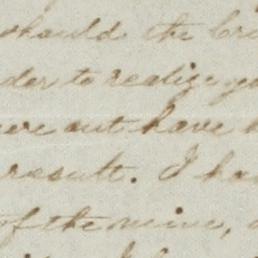 should the
der to realize
are out have
result. I ha
of the mine,